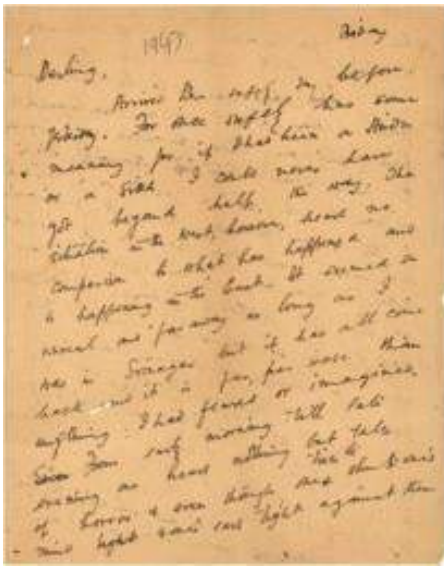 1947
Friday
Darling,
Arrived here safely, day before
yesterday. For once safely has some
meaning for if I had been a Hindu
or a Sikh I could never have
got beyond half the way. The
situation in the West, however, bears no
comparison to what has happened and
is happening in the East. It seemed so
unreal and far away as long as I
was in Srinagar but it has all come
back and it is far, far worse than
anything I had feared or imagined.
From early morning till late
evening one hears nothing but tales
of horror & even though one shuts one's
mind tight against them